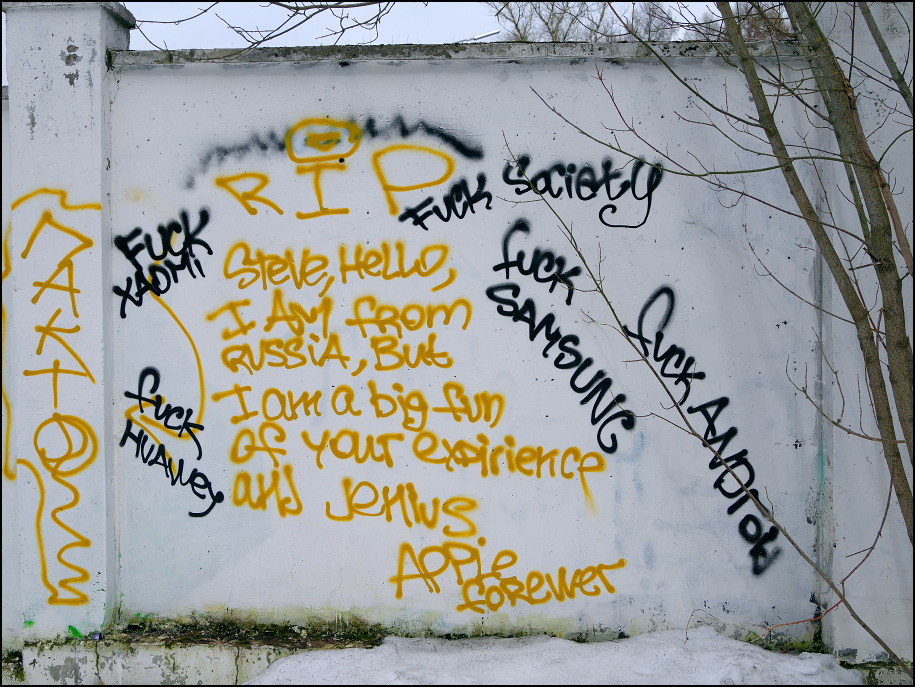 RIP
Steve, Hello,
I AM from
RUSSiA, But
I am a big fun
of your expirience
and Jenius
Apple
forewer
FUCK
XAOMi
fuck
HUAWey
FUCK Society
fuck
SAMSUNG
fuck ANDroid